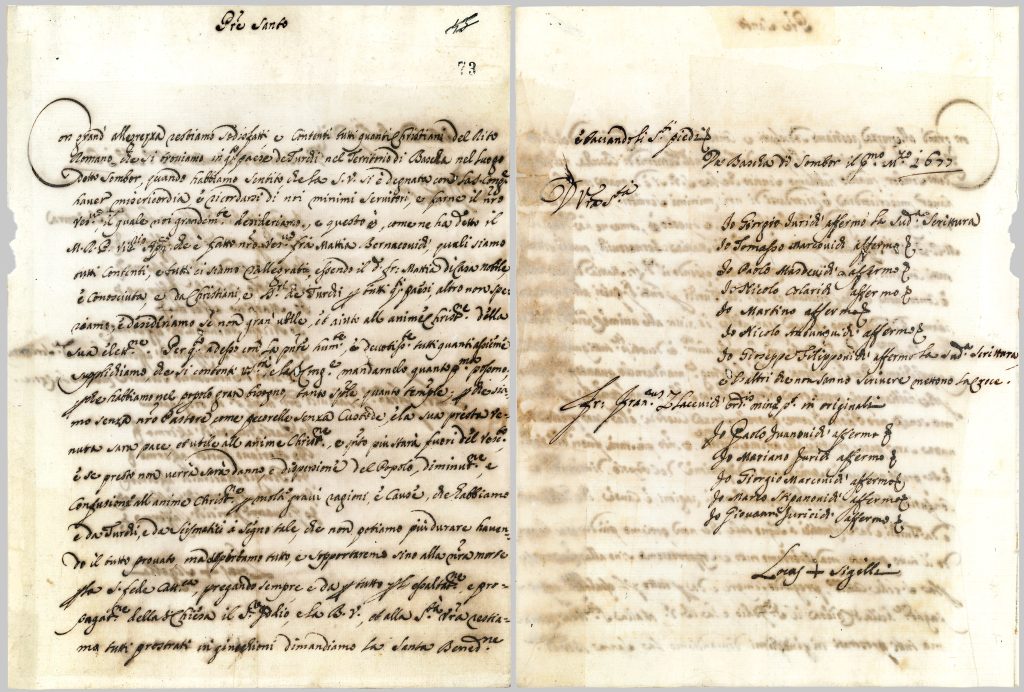 Pre Santo
73
Con grand' allegrezza restiamo sodisfati e Contenti tutti quanti Christiani del Rito
Romano, che si troviamo in q.ti paesi de Turchi nel Territorio di Boscha nel luogo
detto Sombor, quando habbiamo sentito che la S.V. si è degnata con la S. Cong.
haver misericordia e ricordarsi di noi minimi Servitori e farne il nro
Ves.vo, il quale noi grandem.te desideriamo, e questo è, come ne ha detto il
M.R.P. che è fatto nro Ves.vo fra Mattia Bernacovich, quali siamo
tutti Contenti, e tutti ci siamo rallegrati, essendo il d.o fr: Mattia di Casa nobile
è Conosciuta e da Christiani, e da Turchi p tutti q.ti paesi, altro non spe-
riamo, è desideriamo se non gran' utile, et aiuto alle anime Christ.ne della
sua elet.ne Per q.to adesso con la pnte hum.te, è devotiss.te tutti quanti assieme
supplichiamo, che si contenti V.S. e la S. Cong.ne mandarnelo quanto p.mo possono,
pche habbiamo nel popolo gran bisogno, tanto Sole, quanto temple, pche sia-
mo senza nro Pastore come pecorelle senza Custode, è la sua presta ve-
nuta sarà pace, et utile all' anime Christ.ne, e s'esso più starà fuori del Vesc.to
è se presto non verrà sarà danno e dispersione del Popolo, diminut.ne e
Confusione all' anime Christ.ne p molte gravi ragioni, è Cause, che habbiamo
e da Turchi, e da Scismatici à Segno tale, che non potiamo più durare haven-
do il tutto provato, ma sopportamo tutto, e sopportaremo sino alla nra morte
p la S. fede Catt.ca, pregando sempre e da p tutto p l' esaltat.ne e pro-
pagat.ne della S. Chiesa il S.r Iddio, e la B.V., et alla S.tà Vra restia-
mo tutti prostrati in ginochioni dimandiamo la Santa Bened.ne
è baciando li S.ti piedi
Da Boscha di Sombor il p.mo M.zo 1677
D V'ra S.tà
Io Giorgio Jurich affermo la sud.a Scrittura
Io Tomasso Marcovich affermo
Io Paolo affermo
Io Nicolo affermo
Io Martino affermo
Io Nicolo affermo
Io Giuseppe Filipponich affermo la sud.a Scrittura
è l'altri che non sanno Scrivere mettono la Croce
Fr: Fran.cus ord.is min. in originali
Io Paolo Juanovich affermo
Io Mariano Jurich affermo
Io Giorgio Marcovich affermo
Io Marco Stipanovich affermo
Io Giovanni Juricich affermo
Locus + Sigilli